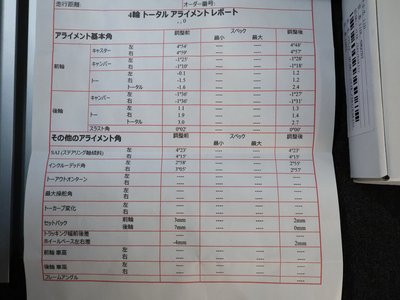 走行距離: オーダー番号:
4輪 トータル アライメント レポート
アライメント基本角 調整前 スペック 最小 最大 調整後
前輪 キャスター 左 4°54' ---- ---- 4°48'
右 4°59' ---- ---- 4°57'
キャンバー 左 -1°25' ---- ---- -1°28'
右 -1°20' ---- ---- -1°18'
トー 左 -0.1 ---- ---- 1.2
右 -1.5 ---- ---- 1.2
トータル -1.6 ---- ---- 2.4
後輪 キャンバー 左 -1°36' ---- ---- -1°27'
右 -1°36' ---- ---- -1°31'
トー 左 1.1 ---- ---- 1.3
右 1.9 ---- ---- 1.4
トータル 3.0 ---- ---- 2.7
スラスト角 0°02' ---- ---- 0°00'
その他のアライメント角 調整前 スペック 最小 最大 調整後
SAI (ステアリング軸傾斜) 左 4°23' ---- ---- 4°23'
右 4°15' ---- ---- 4°15'
インクルーデッド角 左 2°58' ---- ---- 2°55'
右 3°05' ---- ---- 2°57'
トーアウトオンターン 左 ---- ---- ---- ----
右 ---- ---- ---- ----
最大操舵角 左 ---- ---- ---- ----
右 ---- ---- ---- ----
トーカーブ変化 左 ---- ---- ---- ----
右 ---- ---- ---- ----
セットバック 前輪 3mm ---- ---- 2mm
後輪 7mm ---- ---- 0mm
トラッキング幅前後差 ---- ----
ホイールベース左右差 -4mm 2mm
前輪 車高 左 ---- ---- ---- ----
右 ---- ---- ---- ----
後輪 車高 左 ---- ---- ---- ----
右 ---- ---- ---- ----
フレームアングル ---- ---- ---- ----